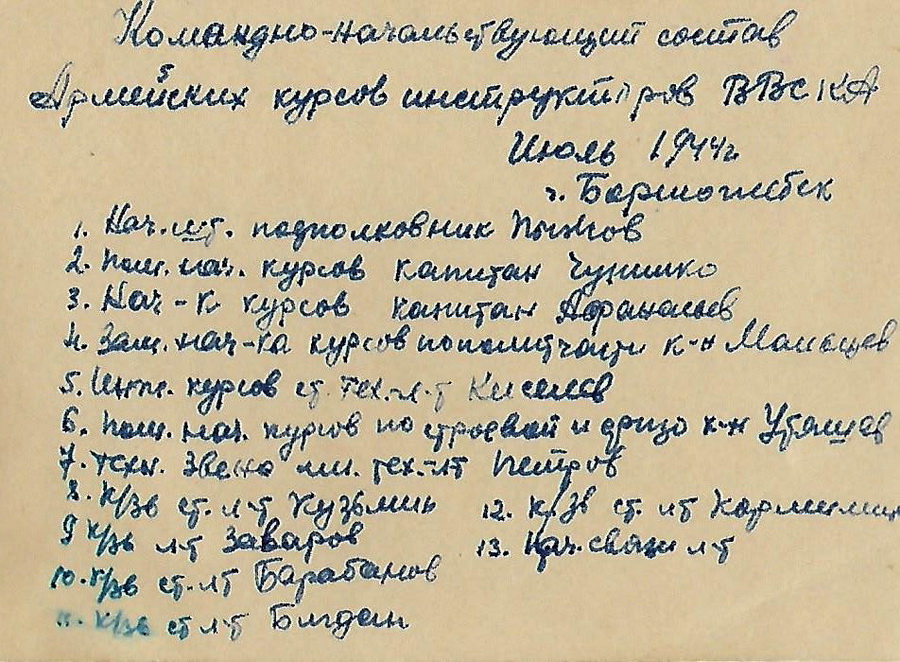 Командно-начальствующий состав
Армейских курсов инструкторов ВВС КА
Июль 1944г
г.
1. Нач. подполковник Пыжов
2. Пом. нач. курсов капитан Чунишко
3. Нач-к курсов капитан Афанасьев
4. Зам. нач-ка курсов по политчасти к-н Мальцев
5. курсов ст. тех.-л-т Киселев
6. Пом. нач. курсов по строевой и физо к-н Убяшев
7. Техн. Звена мл. тех.-лт Петров
8. к/зв ст. л-т Кузьмин
9 к/зв л-т Заваров
10. к/зв ст. лт Барабанов
11. к/зв ст л-т
12. к/зв ст. лт
13. Нач. связи л-т